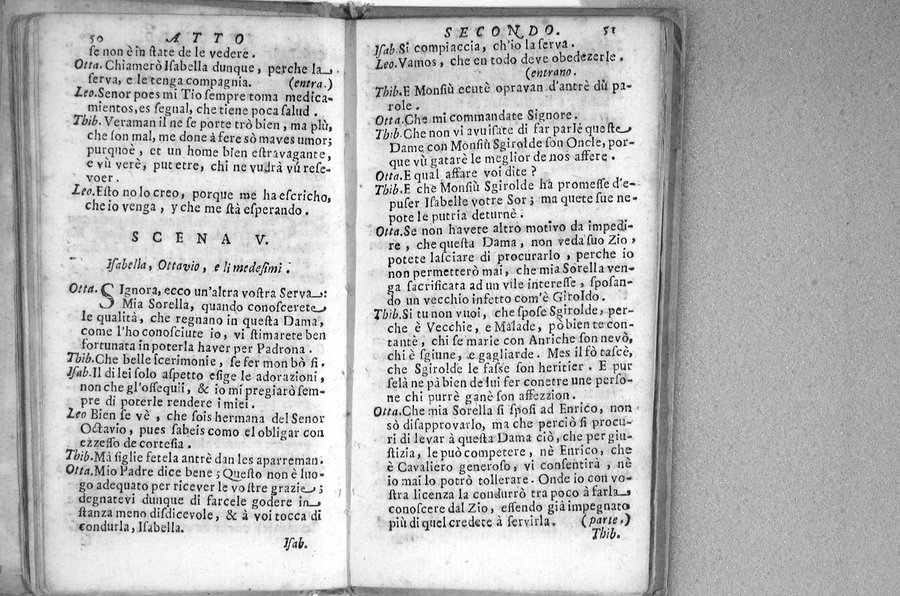 50 ATTO
se non è in state de le vedere.
Otta. Chiamerò Isabella dunque, perche la
serva, e le tenga compagnia. (entra.)
Leo. Senor poes mi Tio sempre toma medica-
mientos, es segnal, che tiene poca salud.
Thib. Veraman il ne se porte trò bien, ma plù,
che son mal, me done à fere sò maves umor;
purquoè, et un home bien estravagante,
e vù verè, put etre, chi ne vudrà vù rese-
voer.
Leo. Esto no lo creo, porque me ha escricho,
che io venga, y che me stà esperando.
SCENA V.
Isabella, Ottavio, e li medesimi.
Otta. SIgnora, ecco un'altra vostra Serva:
Mia Sorella, quando conoscerete
le qualità, che regnano in questa Dama,
come l'ho conosciute io, vi stimarete ben
fortunata in poterla haver per Padrona.
Thib. Che belle scerimonie, se fer mon bò fi.
Isab. Il di lei solo aspetto esige le adorazioni,
non che gl'ossequii, & io mi pregiarò sem-
pre di poterle rendere i miei.
Leo Bien se vè, che sois hermana del Senor
Octavio, pues sabeis como el obligar con
ezzesso de cortesia.
Thib. Mà figlie fetela antrè dan les aparreman.
Otta. Mio Padre dice bene; Questo non è luo-
go adequato per ricever le vostre grazie;
degnatevi dunque di farcele godere in
stanza meno disdicevole, & à voi tocca di
condurla, Isabella.
Isab.
SECONDO. 51
Isab. Si compiaccia, ch'io la serva.
Leo. Vamos, che en todo deve obedezerle.
(entrano.
Thib. E Monsiù ecutè opravan d'antrè dù pa-
role.
Otta. Che mi commandate Signore.
Thib. Che non vi avuisate di far parlè queste
Dame con Monsiù Sgirolde son Oncle, por-
que vù gatarè le meglior de nos affere.
Otta. E qual affare voi dite?
Thib. E che Monsiù Sgirolde ha promesse d'e-
puser Isabelle votre Sor; ma quete sue ne-
pote le putria deturnè.
Otta. Se non havete altro motivo da impedi-
re, che questa Dama, non veda suo Zio,
potete lasciare di procurarlo, perche io
non permetterò mai, che mia Sorella ven-
ga sacrificata ad un vile interesse, sposan-
do un vecchio infetto com'è Giroldo.
Thib. Si tu non vuoi, che spose Sgirolde, per-
che è Vecchie, e Malade, pò bien te con-
tantè, chi se marie con Anriche son nevò,
chi è sgiune, e gagliarde. Mes il fò tascè,
che Sgirolde le fasse son heritier. E pur
selà ne pà bien de lui fer conetre une perso-
ne chi purrè ganè son affezzion.
Otta. Che mia Sorella si sposi ad Enrico, non
sò disapprovarlo, ma che perciò si procu-
ri di levar à questa Dama ciò, che per giu-
stizia, le può competere, nè Enrico, che
è Cavaliero generoso, vi consentirà, nè
io mai lo potrò tollerare. Onde io con vo-
stra licenza la condurrò tra poco à farla
conoscere dal Zio, essendo già impegnato
più di quel credete à servirla. (parte.)
Thib.